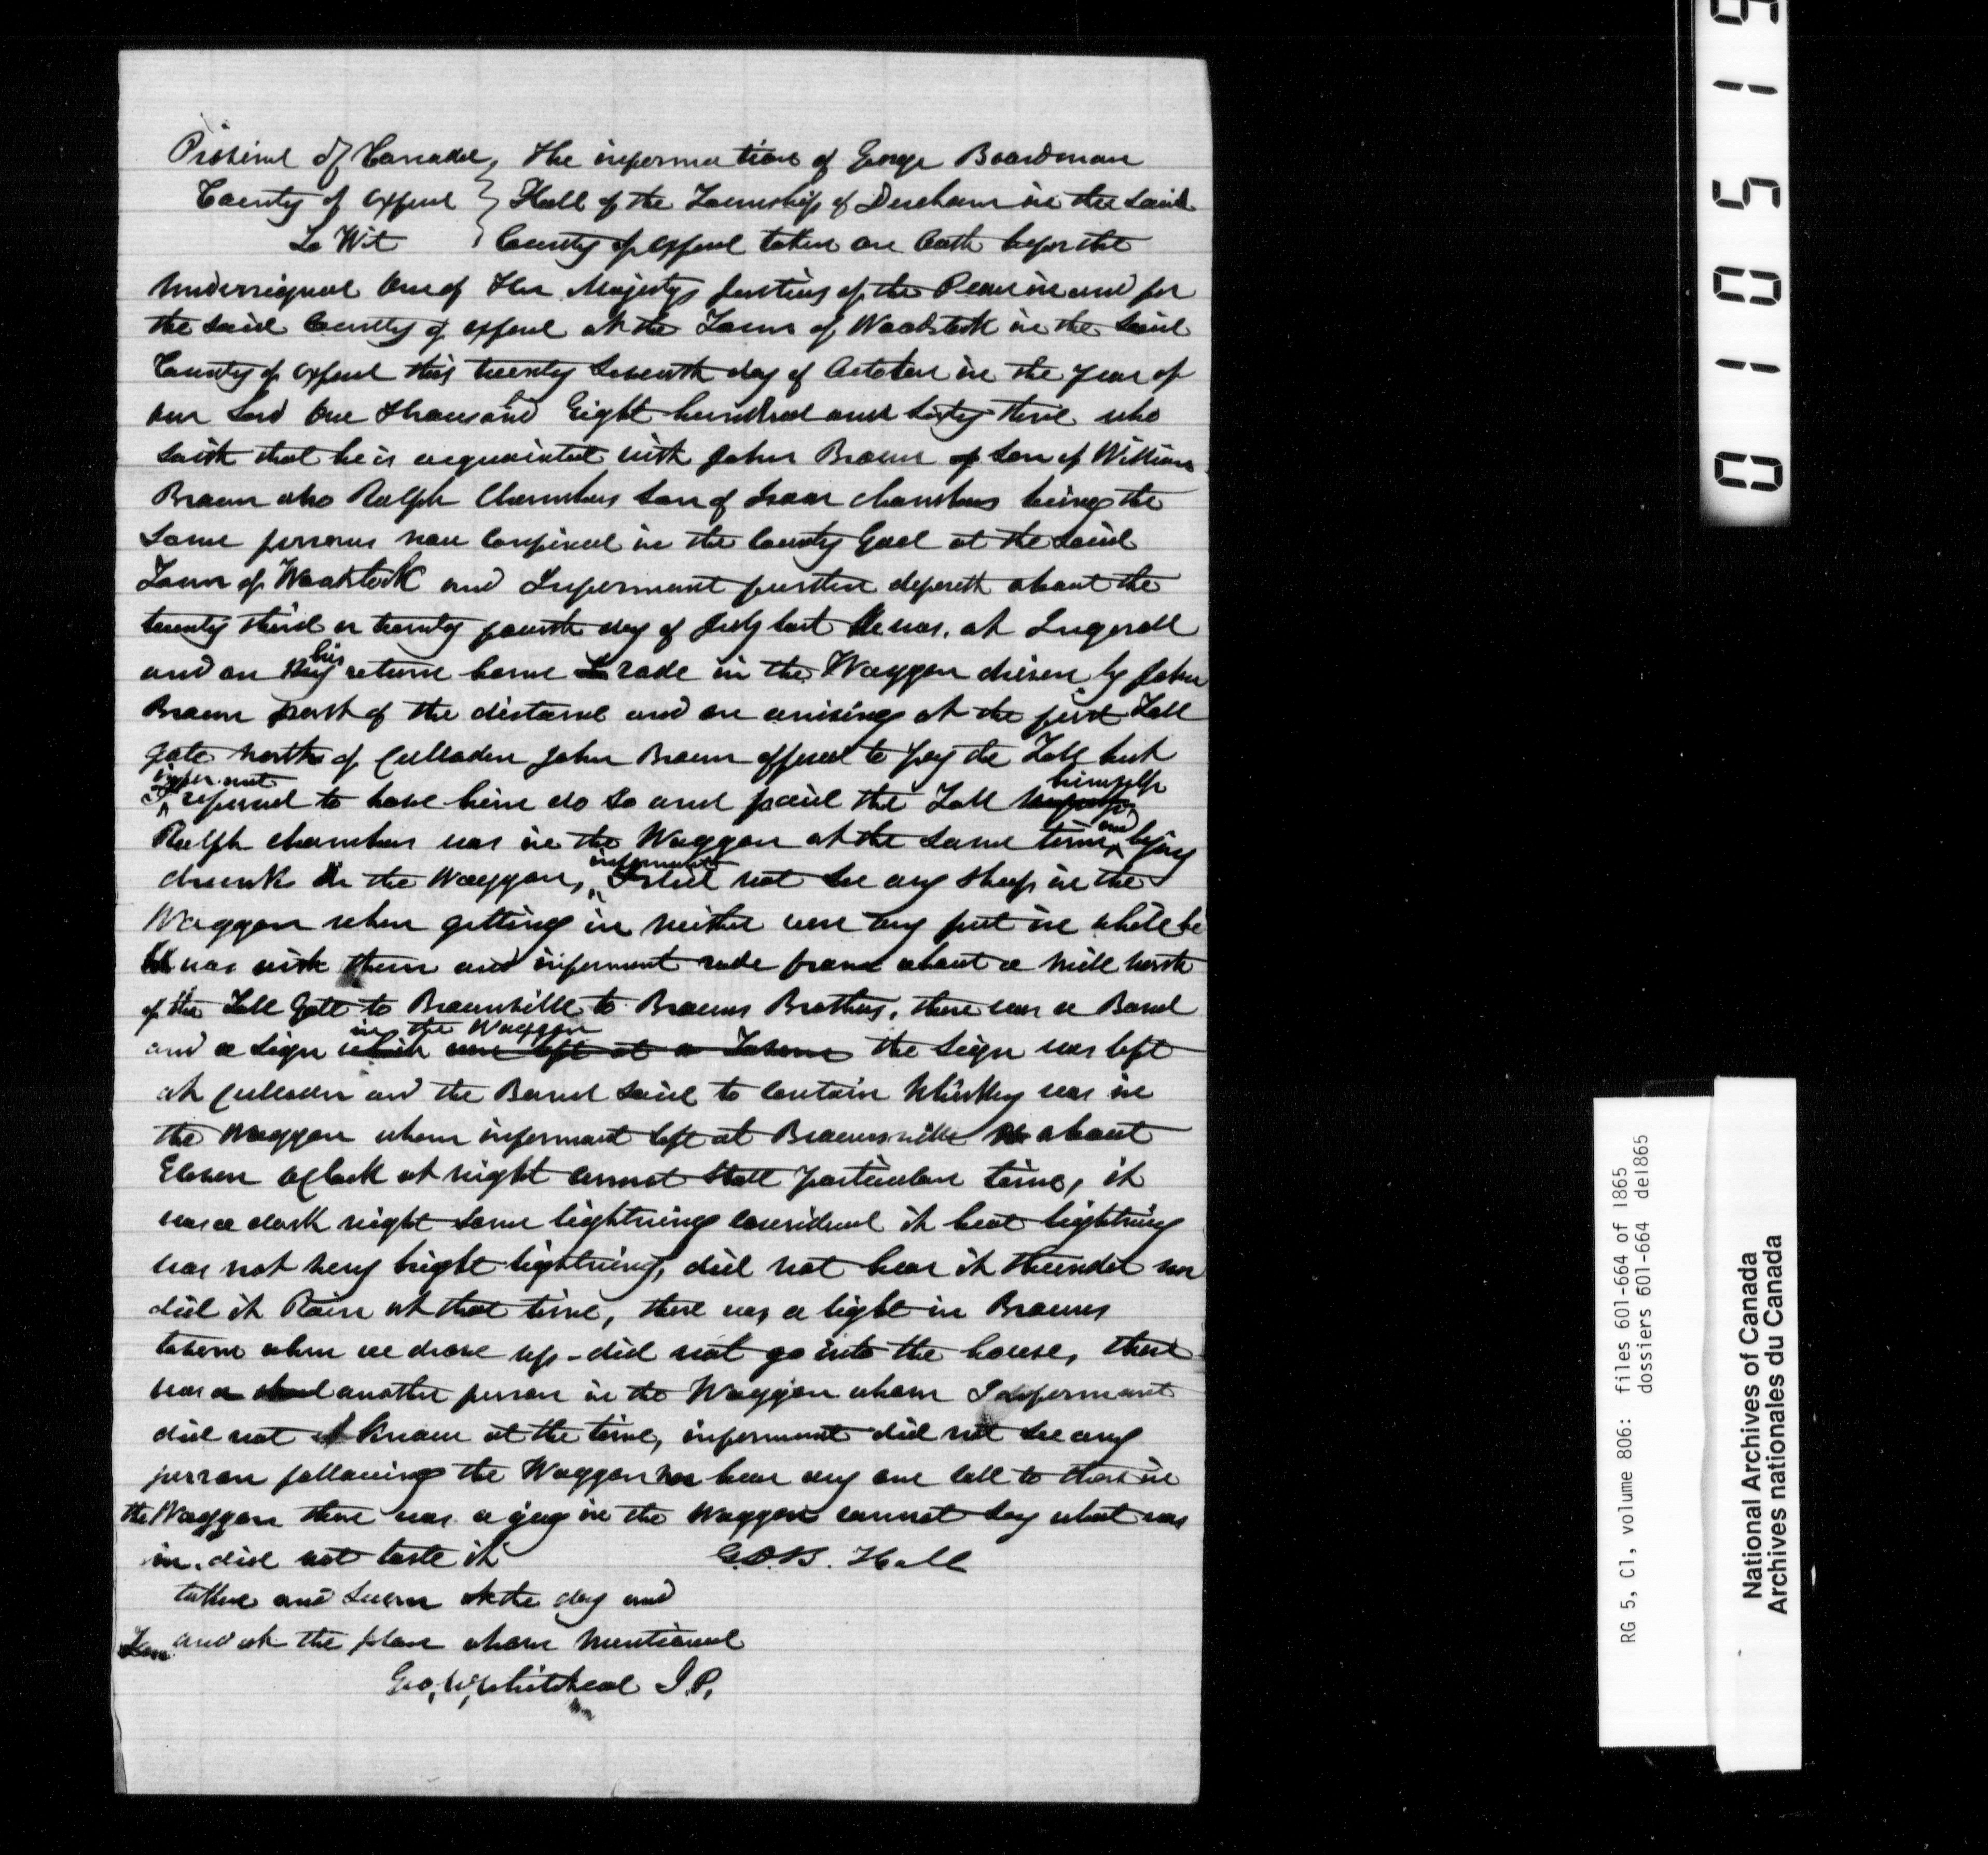 Province of Canada } The information of George Boardman
County of Oxford } Hall of the Township of Dereham in the said
To Wit } County of Oxford taken on Oath before the
undersigned One of Her Majestys Justices of the Peace in and for
the said County of Oxford at the Town of Woodstock in the said
County of Oxford this twenty Seventh day of October in the year of
our Lord One thousand Eight hundred and Sixty three who
saith that he is acquainted with John Brown of Son of William
Brown also Ralph Chambers Son of Isaac Chambers being the
Same persons now Confined in the County Gaol at the said
Town of Woodstock and Informant further deposeth about the
twenty third or twenty fourth day of July last He was at Ingersoll
and on his return home rode in the Waggon driven by John
Brown part of the distance and on arriving at the first Toll
gate north of Culloden John Brown offered to pay the Toll but
informant refused to have him do so and paid the Toll himself
Ralph Chambers was in the Waggon at the same time and lying
drunk in the Waggon, informant did not see any sheep in the
Waggon when getting in neither were any put in while he
was with them and informant rode from about a mile north
of the Toll Gate to Brownsville to Browns Brothers, there was a Barrel
and a sign in the Waggon which was left at a Tavern the sign was left
at Culloden and the Barrel said to contain Whiskey was in
the Waggon when informant left at Brownsville about
Eleven oclock at night cannot state particular time, it
was a dark night some lightning considered it heat lightning
was not very bright lightning, did not hear it thunder nor
did it Rain at that time, there was a light in Browns
tavern when we drove up - did not go into the house, there
was another person in the Waggon whom Informant
did not know at the time, informant did not see any
person following the Waggon nor hear any one call to those in
the Waggon there was a jug in the Waggon cannot say what was
in. did not taste it G.B. Hall
taken and sworn the day and
and at the place above mentioned
Geo, W, Whitehead J.P.
010519
RG 5, C1, volume 806: files 601-664 of 1865
dossiers 601-664 de1865
National Archives of Canada
Archives nationales du Canada